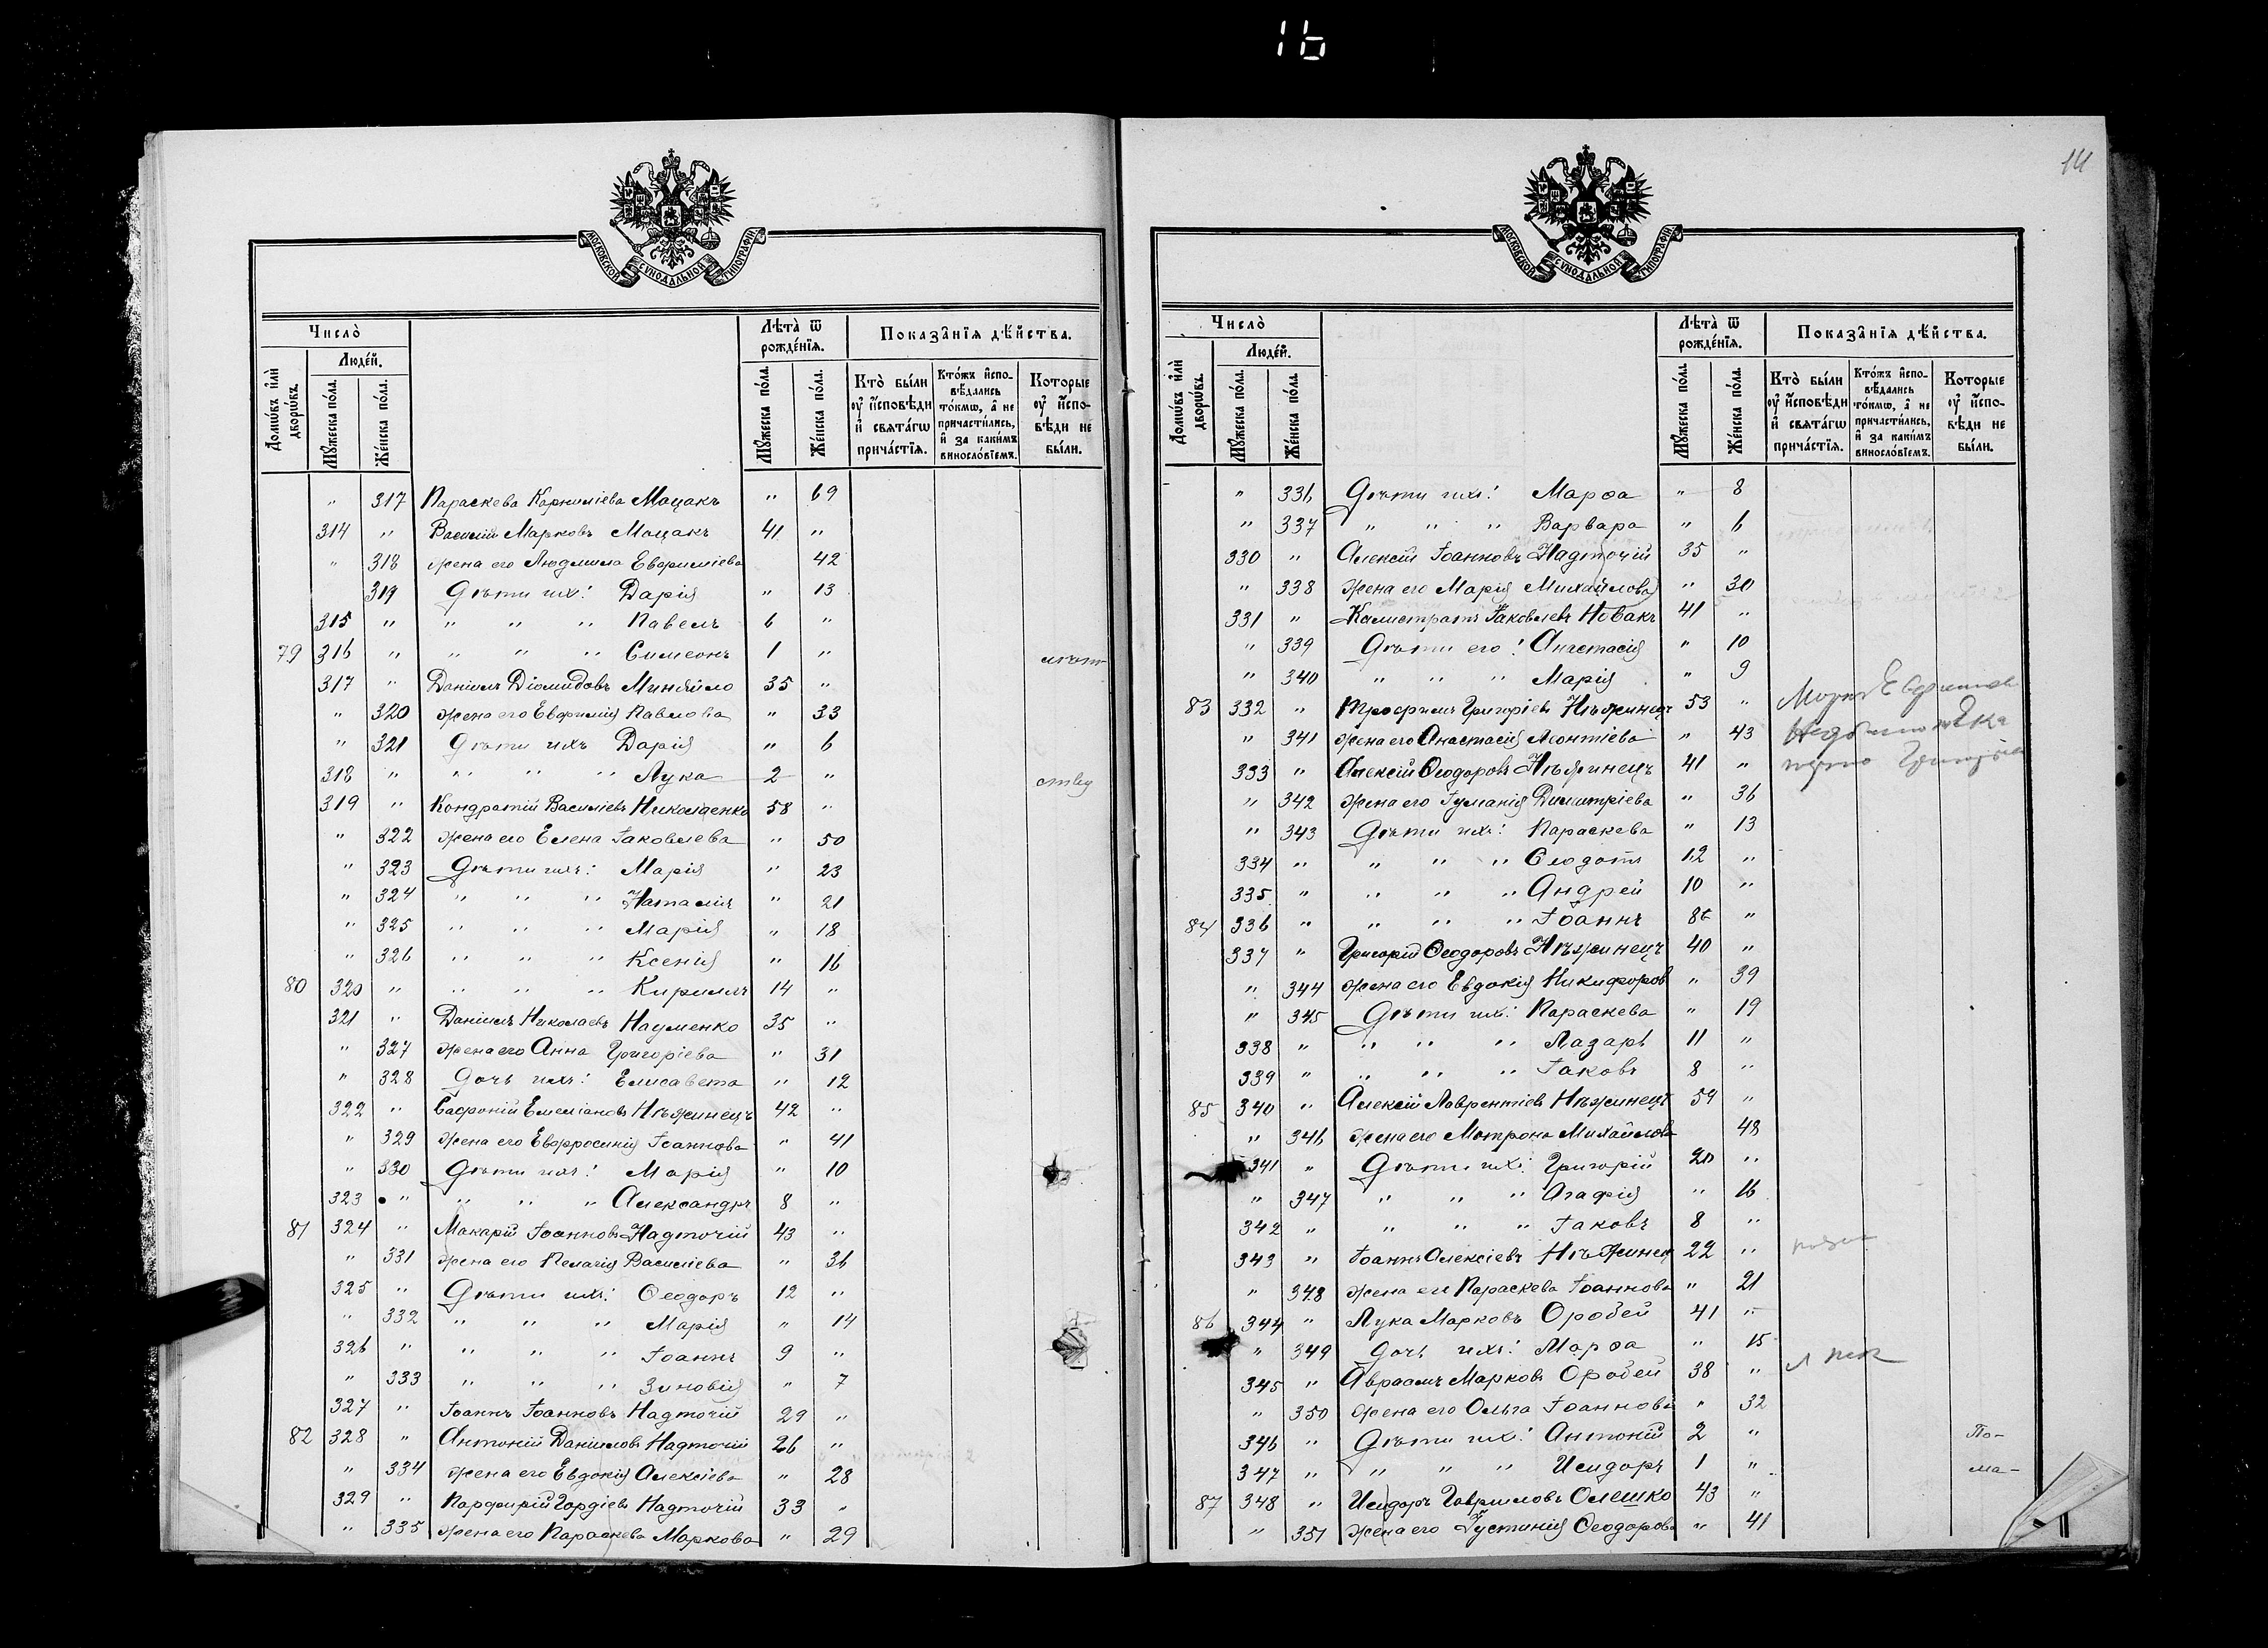 16
МОСКОВСКОЙ СѴНОДАЛЬНОЙ ТИПОГРАФІИ
Число̀
Лѣта̀ ѿ рожде́нїѧ.
Показа̂нїѧ дѣ́йства.
Домѡ́въ и҆лѝ дворѡ́въ.
Люде́й.
Мꙋ́жеска по́ла.
Же́нска по́ла.
Мꙋ́жеска по́ла.
Же́нска по́ла.
Кто̀ бы́ли ᲂу҆ и҆́сповѣди и҆ свѧта́гѡ прича́стїѧ.
Кто́жъ и҆спо-вѣ́дались то́кмѡ, а҆ не причасти́лись, и҆ за каки́мъ винослові́емъ.
Которые ᲂу҆ и҆́спо-вѣди не бы́ли.
" 317 Параскева Корниліева Моцакъ " 69
314 " Василій Марковъ Моцакъ 41 "
" 318 жена его Людмила Евфиміева 42
319 Дѣти ихъ: Дарія " 13
315 " " " " Павелъ 6 "
79 316 " " " " Симеонъ 1 "
317 " Даніилъ Діомидовъ Миняйло 35 "
" 320 жена его Евфимія Павлова " 33
" 321 Дѣти ихъ Дарія " 6
318 " " " " Лука 2 "
319 " Кондратій Василіевъ Николаенко 58 "
" 322 жена его Елена Іаковлева " 50
" 323 Дѣти ихъ: Марія " 23
" 324 " " " Наталія " 21
" 325 " " " Марія " 18
" 326 " " " Ксенія " 16
80 320 " " " " Кириллъ 14 "
321 " Даніилъ Николаевъ Науменко 35 "
" 327 жена его Анна Григоріева " 31
" 328 Дочь ихъ: Елисавета " 12
322 " Софроній Емеліановъ Нѣжинецъ 42 "
" 329 жена его Евфросинія Іоаннова " 41
" 330 Дѣти ихъ: Марія " 10
323 " " " " Александръ 8 "
81 324 " Макарій Іоанновъ Надточій 43 "
" 331 жена его Пелагія Василіева " 36
325 " Дѣти ихъ: Ѳеодоръ 12 "
" 332 " " " Марія " 14
326 " " " " Іоаннъ 9 "
" 333 " " " Зиновія " 7
327 " Іоаннъ Іоанновъ Надточій 29 "
82 328 " Антоній Даніиловъ Надточій 26 "
" 334 жена его Евдокія Алексіева " 28
329 " Порфирій Гордіевъ Надточій 33 "
" 335 жена его Параскева Маркова " 29
14
МОСКОВСКОЙ СѴНОДАЛЬНОЙ ТИПОГРАФІИ
Число̀
Лѣта̀ ѿ рожде́нїѧ.
Показа̂нїѧ дѣ́йства.
Домѡ́въ и҆лѝ дворѡ́въ.
Люде́й.
Мꙋ́жеска по́ла.
Же́нска по́ла.
Мꙋ́жеска по́ла.
Же́нска по́ла.
Кто̀ бы́ли ᲂу҆ и҆́сповѣди и҆ свѧта́гѡ прича́стїѧ.
Кто́жъ и҆спо-вѣ́дались то́кмѡ, а҆ не причасти́лись, и҆ за каки́мъ винослові́емъ.
Которые ᲂу҆ и҆́спо-вѣди не бы́ли.
" 336 Дѣти ихъ: Марѳа " 8
" 337 " " " Варвара " 6
330 " Алексій Іоанновъ Надточій 35 "
" 338 жена его Марія Михайлова " 30
331 " Калистратъ Іаковлевъ Новакъ 41 "
" 339 Дѣти его: Анастасія " 10
" 340 " " " Марія " 9
83 332 " Трофимъ Григоріевъ Нѣжинецъ 53 "
" 341 жена его Анастасія Леонтіева " 43
333 " Алексій Ѳеодоровъ Нѣжинецъ 41 "
" 342 жена его Іуліанія Димитріева " 36
" 343 Дѣти ихъ: Параскева " 13
334 " " " " Ѳеодотъ 12 "
335 " " " " Андрей 10 "
84 336 " " " " Іоаннъ 8 "
337 " Григорій Ѳеодоровъ Нѣжинецъ 40 "
" 344 жена его Евдокія Никифоров " 39
" 345 Дѣти ихъ: Параскева " 19
338 " " " " Лазарь 11 "
339 " " " " Іаковъ 8 "
85 340 " Алексій Лаврентіевъ Нѣжинецъ 59 "
" 346 жена его Матрона Михайлова 48
341 " Дѣти ихъ: Григорій 20 "
" 347 " " " Агафія " 16
342 " " " " Іаковъ 8 "
343 " Іоаннъ Алексіевъ Нѣжинец 22 "
" 348 жена его Параскева Іоаннова " 21
86 344 " Лука Марковъ Оробей 41 "
" 349 Дочь ихъ: Марѳа " 15
345 " Авраамъ Марковъ Оробей 38 "
" 350 жена его Ольга Іоаннова " 32
346 " Дѣти ихъ: Антоній 2 " По-
347 " " " " Исидоръ 1 " ма-
87 348 " Исидоръ Гавриловъ Олешко 43 "
" 351 жена его Іустинія Ѳеодорова " 41